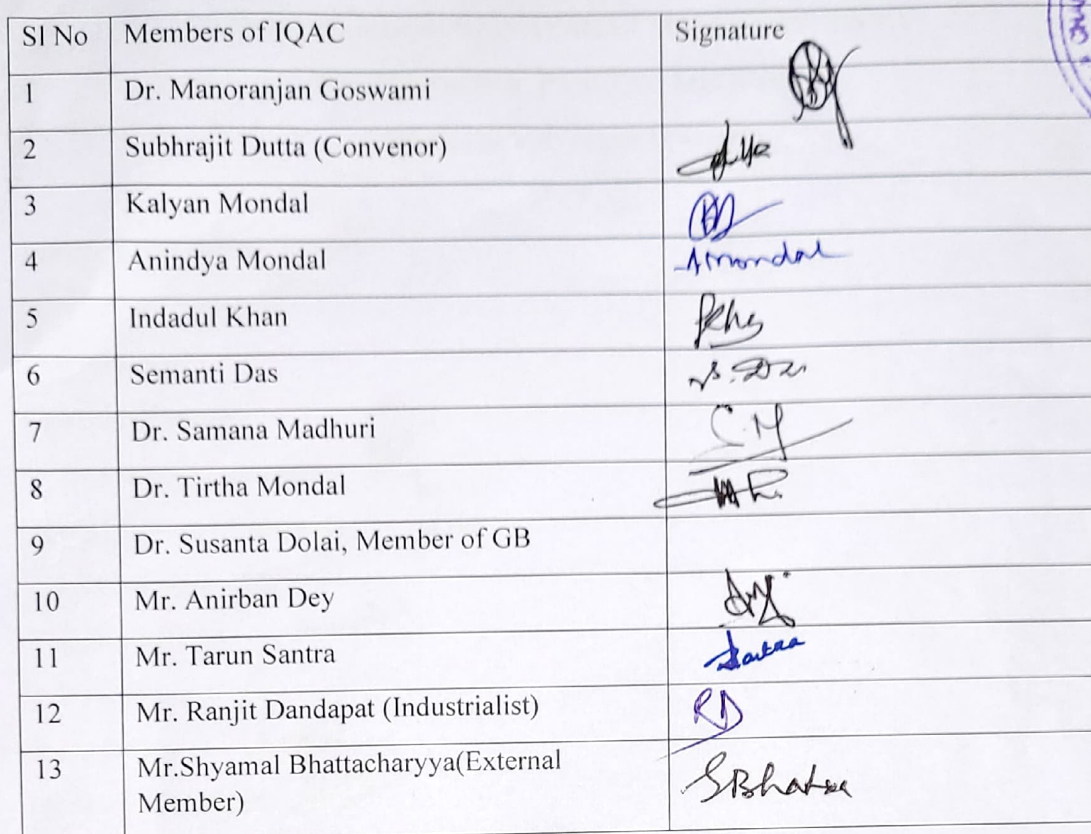 Sl No Members of IQAC Signature
1 Dr. Manoranjan Goswami
2 Subhrajit Dutta (Convenor)
3 Kalyan Mondal
4 Anindya Mondal AMondal
5 Indadul Khan
6 Semanti Das S. Das
7 Dr. Samana Madhuri S.M
8 Dr. Tirtha Mondal
9 Dr. Susanta Dolai, Member of GB
10 Mr. Anirban Dey
11 Mr. Tarun Santra
12 Mr. Ranjit Dandapat (Industrialist) RD
13 Mr.Shyamal Bhattacharyya(External
Member)